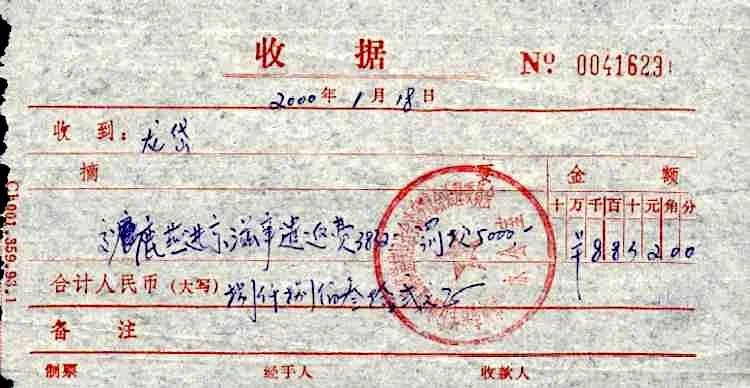 收据
№ 0041623
2000年1月18日
收到：龙岱
摘 要 金 额
十万千百十元角分
鹿燕进京滋事遣返费3832 罚款5000.- ¥8832 00
合计人民币（大写）捌仟捌佰叁拾贰元
备 注
制票 经手人 收款人